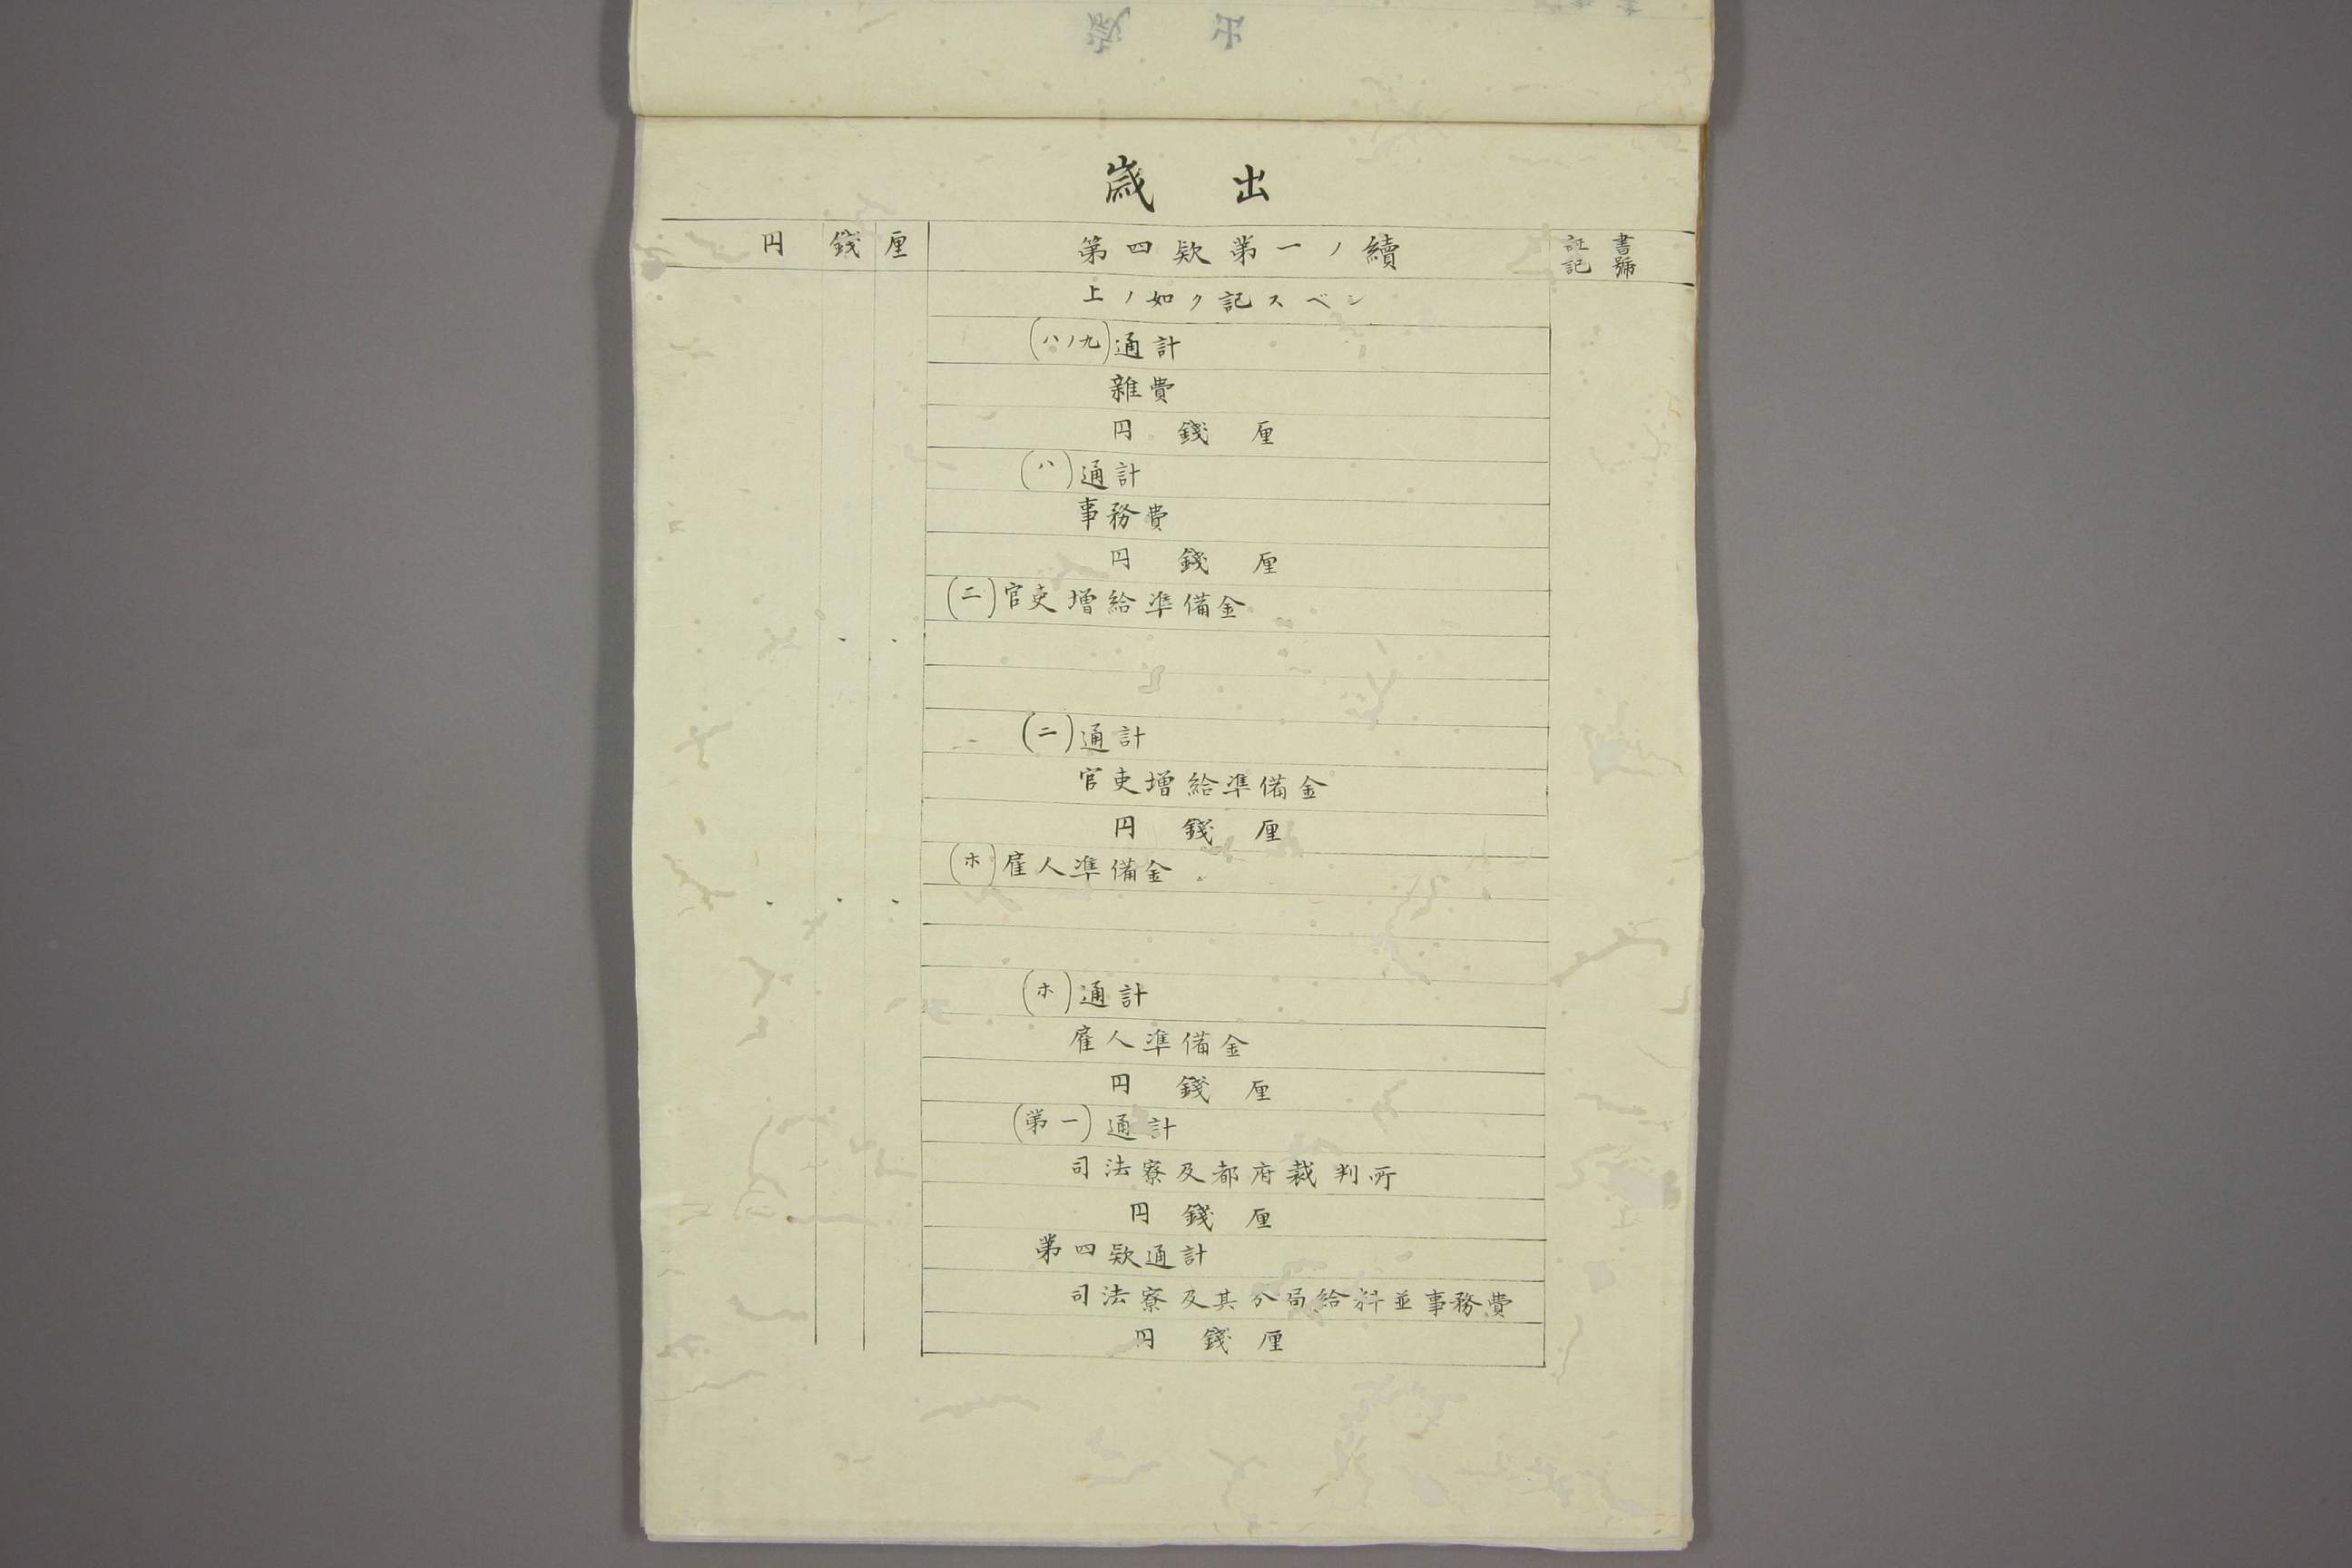 歳出
円 錢 厘 第四款第一ノ續 証書
記號
上ノ如ク記スベシ
(ハノ九)通計
雜費
円 錢 厘
(ハ)通計
事務費
円 錢 厘
(ニ)官吏増給準備金
(ニ)通計
官吏増給準備金
円 錢 厘
(ホ)雇人準備金
(ホ)通計
雇人準備金
円 錢 厘
(第一)通計
司法寮及都府裁判所
円 錢 厘
第四款通計
司法寮及其分局給料並事務費
円 錢 厘